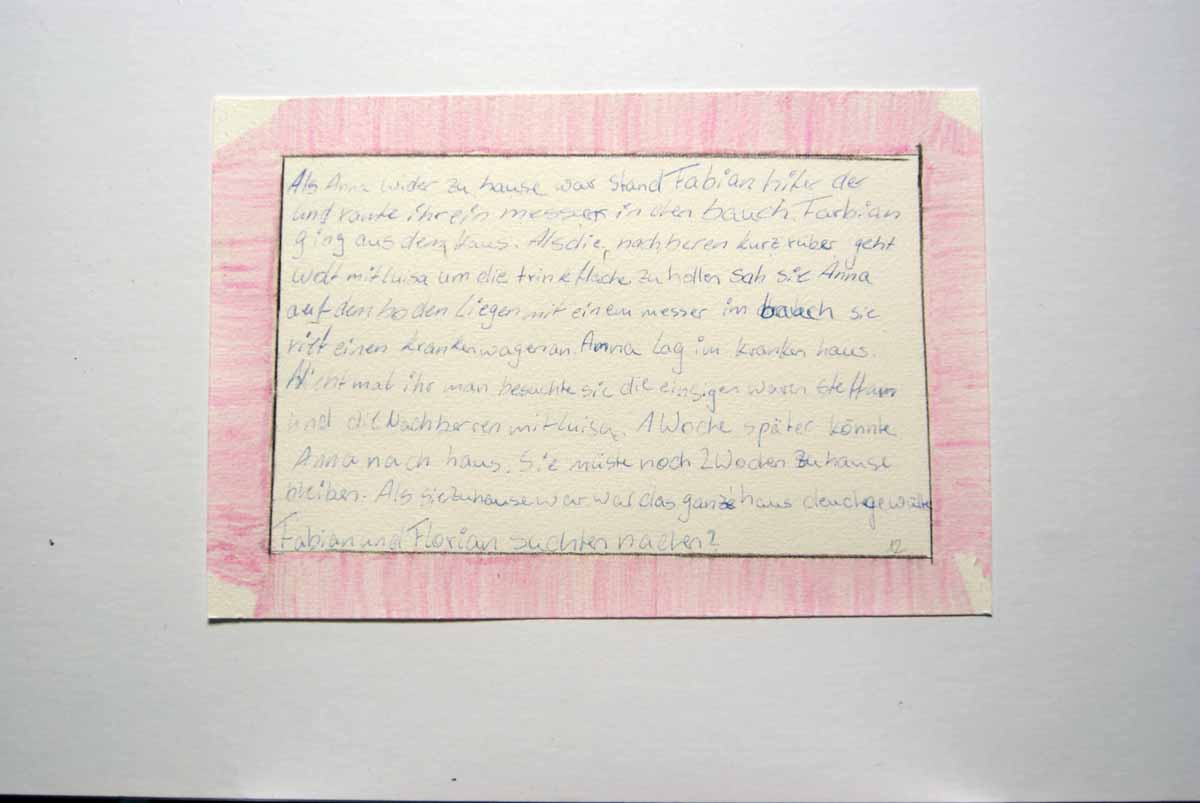 Als Anna wider zu hause war stand Fabian hiter der
und ramte ihr ein messer in den bauch. Farbian
ging aus dem Haus. Als die nachberen kurz rüber geht
wolt mit luisa um die trinkflache zu hollen sah sie Anna
auf den boden Liegen mit einem messer im bauch sie
rift einen krankenwagen an. Anna lag im kranken haus.
Nicht mal ihr man besuchte sie die einsigen waren steffan
und die Nachberren mit luisa. 1 Woche später könnte
Anna nach haus. Sie müste noch 2 Wochen Zuhause
bleiben. Als sie Zuhause war war das ganze haus
Fabian und Florian suchten nach
12